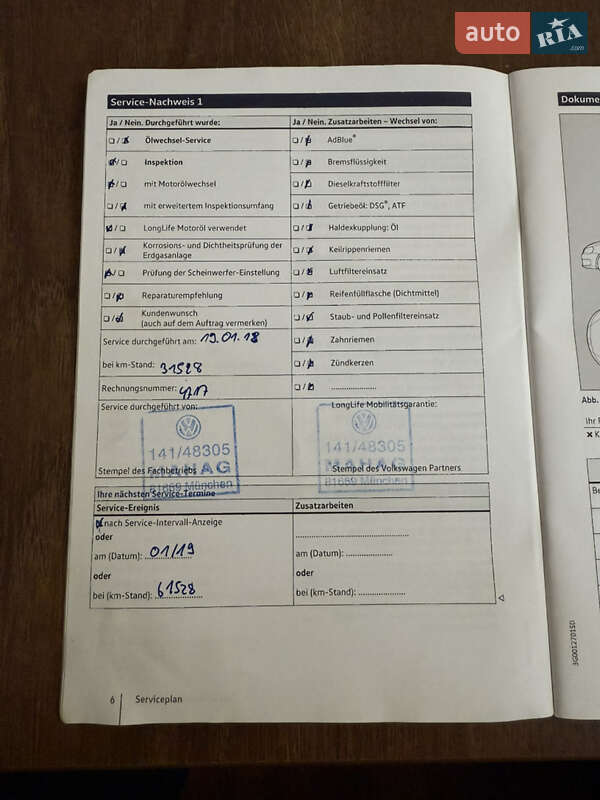 auto RIA .com
Service-Nachweis 1
Dokume
Ja / Nein. Durchgeführt wurde:
Ja / Nein. Zusatzarbeiten – Wechsel von:
Ölwechsel-Service
AdBlue®
Inspektion
Bremsflüssigkeit
mit Motorölwechsel
Dieselkraftstofffilter
mit erweitertem Inspektionsumfang
Getriebeöl: DSG®, ATF
LongLife Motoröl verwendet
Haldexkupplung: Öl
Korrosions- und Dichtheitsprüfung der
Erdgasanlage
Keilrippenriemen
Prüfung der Scheinwerfer-Einstellung
Luftfiltereinsatz
Reparaturempfehlung
Reifenfüllflasche (Dichtmittel)
Kundenwunsch
(auch auf dem Auftrag vermerken)
Staub- und Pollenfiltereinsatz
Service durchgeführt am: 19.01.18
Zahnriemen
bei km-Stand: 31528
Zündkerzen
Rechnungsnummer:
Service durchgeführt von:
LongLife Mobilitätsgarantie:
141/48305
MAHAG
81669 München
Stempel des Fachbetriebs
141/48305
MAHAG
81669 München
Stempel des Volkswagen Partners
Ihre nächsten Service-Termine
Service-Ereignis
Zusatzarbeiten
nach Service-Intervall-Anzeige
oder
am (Datum): 01/19
am (Datum):
oder
oder
bei (km-Stand): 61528
bei (km-Stand):
6
Serviceplan
3G0012701SD
Abb.
Ihr F
Be